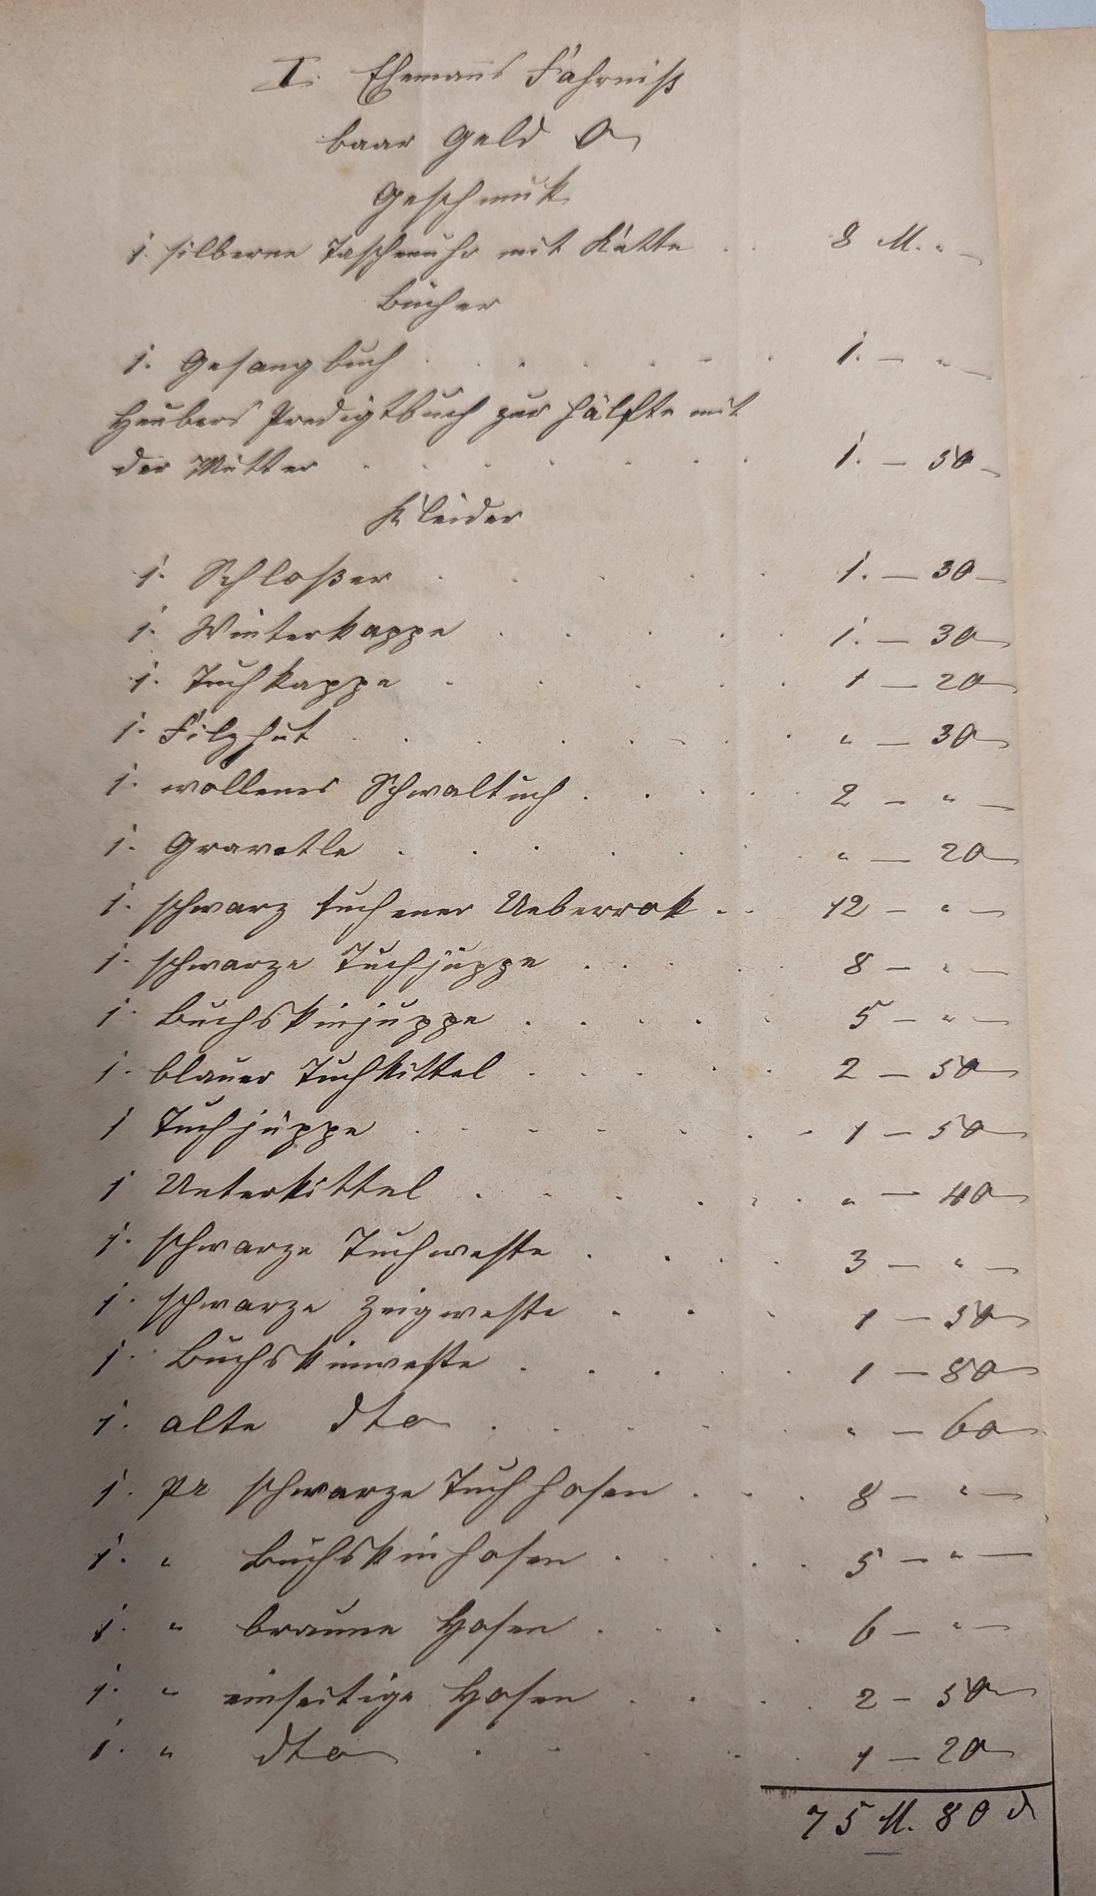 I. Ehemanns Fahrniß
baar Geld 0
Geschmuk
1. silberne Taschenuhr mit Kette . . 8 M. "
Bücher
1. Gesangbuch . . . . . . . 1. — "
Heubers Predigtbuch zur Hälfte mit
der Mutter . . . . . . . 1. — 50
Kleider
1. Schloßer . . . . . 1. — 30
1. Winterkappe . . . . . 1. — 30
1. Tuchkappe . . . . . 1 — 20
1. Filzhut . . . . . . . " — 30
1. wollenes Schwaltuch . . . . 2 — "
1. Gravatle . . . . . . . " — 20
1. schwarz tuchener Ueberrok . . 12 — "
1. schwarze Tuchjuppe . . . . 8 — "
1. Buchskinjuppe . . . . . 5 — "
1. blauer Tuchkittel . . . . . 2 — 50
1 Tuchjuppe . . . . . . . 1 — 50
1 Unterkittel . . . . . . " — 40
1. schwarze Tuchweste . . . . 3 — "
1. schwarze Zeigweste . . . 1 — 50
1. Buchskinweste . . . . . 1 — 80
1. alte dto . . . . . " — 60
1. pr schwarze Tuchhosen . . . 8 — "
1. " Buchskinhosen . . . . 5 — "
1. " braune Hosen . . . . 6 — "
1. " einseitige Hosen . . . . 2 — 50
1. " dto . . . . . 1 — 20
75 M. 80 d